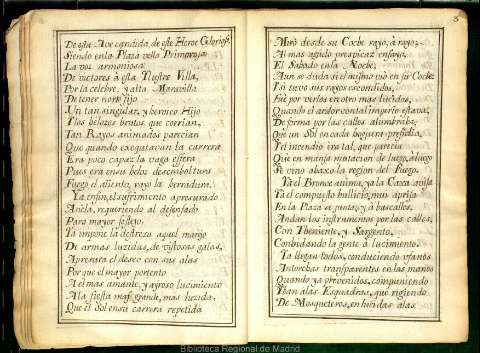 De esta Ave candida, de este Heroe Glorioso,
Siendo en la Plaza vella Primorosa
La voz armoniosa
De victores à esta Ilustre Villa,
Por la celebre, y alta Maravilla
De tener norte fijo
Un tan singular, y heroico Hijo
Los belozes brutos que corrian,
Tan Rayos animados parecian
Que quando executavan la carrera
Era poco capaz la vaga esfera
Pues era en su beloz desemboltura
Fuego el aliento, rayo la herradura.
Ya, en fin, el sufrimiento apresurado
Anela, requiriendo al desenfado
Para mayor festejo.
Ya impone la destreza aquel manejo
De armas luzidas, de vistosas galas,
Aprensta el deseo con sus alas
Por que el mayor portento
A el mas amante, y ayroso lucimiento
A la fiesta mas grande, mas luzida.
Que el Sol en su carrera repetida
3
Mirò desde su Coche rayo, à rayo;
Al mas agudo perspicaz ensayo,
El Sabado en la Noche,
Aun se duda si el mismo vio en su Coche
Ya tuvo sus rayos escondidos,
Fue por verlos en otro mas lucidos,
Quando el ardor con tal imperio estava,
De forma por las calles alumbraba,
Que un Sol en cada hoguera presidia,
Y el incendio era tal, que parecia
Que en mansa mutacion de luego, à luego
Se vino abaxo la region del Fuego.
Ya el Bronce anima, ya la Caxa avisa
Ya el compuesto bullicio, mas aprisa
En la Plaza se junta, y à bascalles
Andan los instrumentos por las calles,
Con Theniente, y Sargento,
Conbidando la gente à lucimiento.
Ya llegan todos, conduciendo ufanos
Antorchas transparentes en las manos
Quando ya prevenidos, componiendo
Iban alas Esquadras, que rigiendo
De Mosqueteros, en lucidas alas
Biblioteca Regional de Madrid